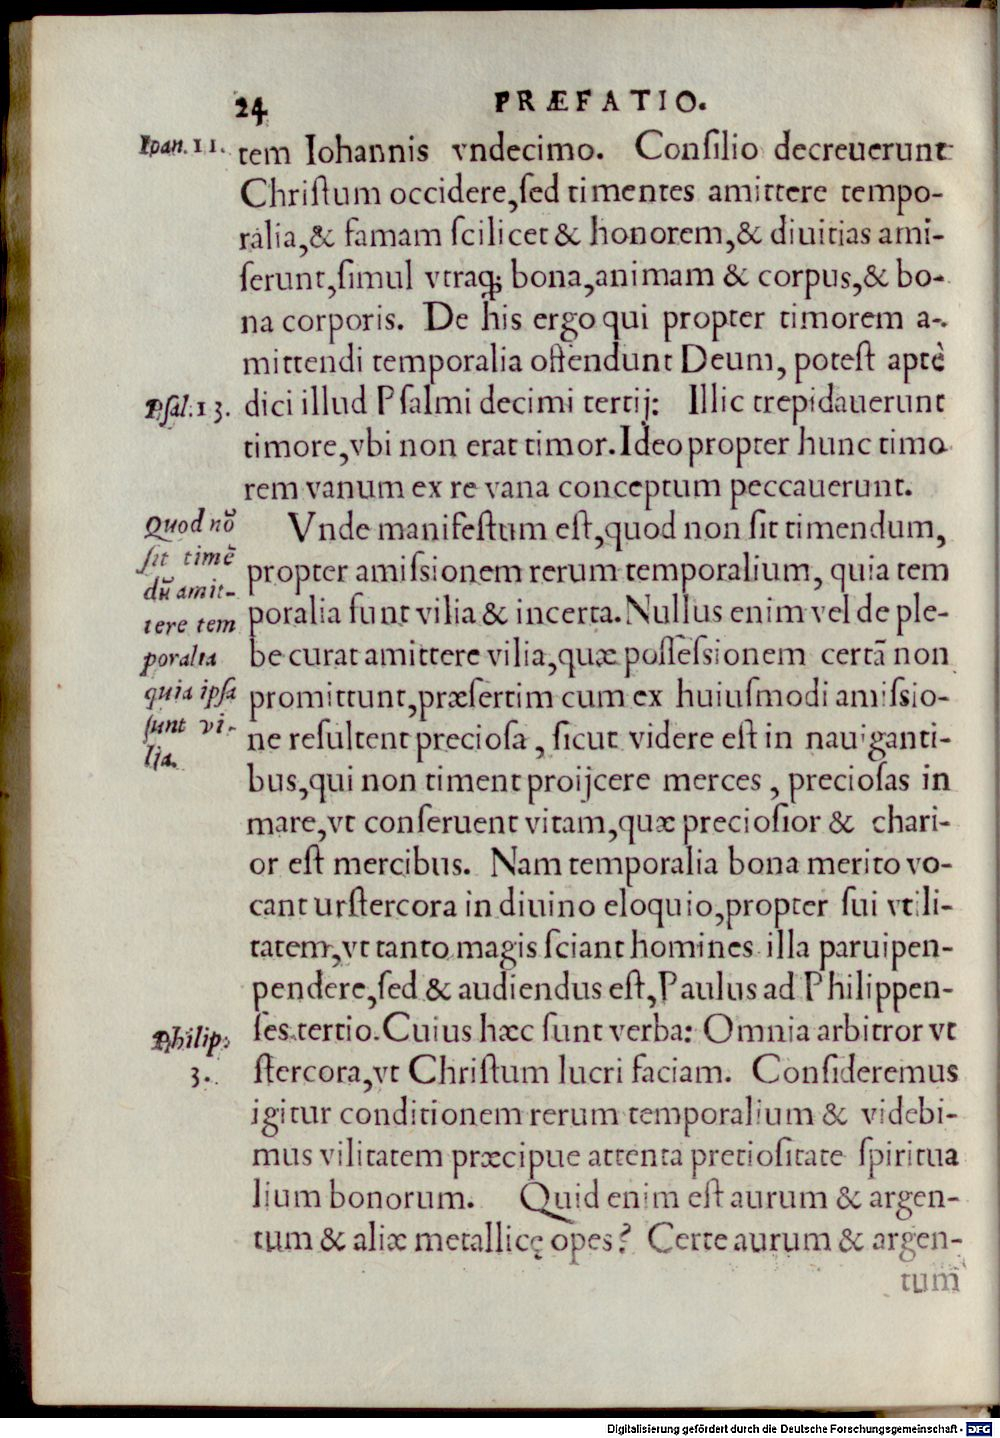 24 PRÆFATIO.
Ioan. 11. tem Iohannis vndecimo. Consilio decreuerunt
Christum occidere, sed timentes amittere tempo-
ralia, & famam scilicet & honorem, & diuitias ami-
serunt, simul vtraq; bona, animam & corpus, & bo-
na corporis. De his ergo qui propter timorem a-
mittendi temporalia offendunt Deum, potest aptè
Psal. 13. dici illud Psalmi decimi tertij: Illic trepidauerunt
timore, vbi non erat timor. Ideo propter hunc timo
rem vanum ex re vana conceptum peccauerunt.
Quod nō
sit timē
dū amit-
tere tem
poralia
quia ipsa
sunt vi-
lia.
Vnde manifestum est, quod non sit timendum,
propter amissionem rerum temporalium, quia tem
poralia sunt vilia & incerta. Nullus enim vel de ple-
be curat amittere vilia, quæ possessionem certā non
promittunt, præsertim cum ex huiusmodi amissio-
ne resultent preciosa, sicut videre est in nauiganti-
bus, qui non timent proijcere merces, preciosas in
mare, vt conseruent vitam, quæ preciosior & chari-
or est mercibus. Nam temporalia bona merito vo-
cantur stercora in diuino eloquio, propter sui vtili-
tatem, vt tanto magis sciant homines illa paruipen-
pendere, sed & audiendus est, Paulus ad Philippen-
Philip.
3.
ses tertio. Cuius hæc sunt verba: Omnia arbitror vt
stercora, vt Christum lucri faciam. Consideremus
igitur conditionem rerum temporalium & videbi-
mus vilitatem præcipue attenta pretiositate spiritua
lium bonorum. Quid enim est aurum & argen-
tum & aliæ metallicę opes? Certe aurum & argen-
tum
Digitalisierung gefördert durch die Deutsche Forschungsgemeinschaft - DFG